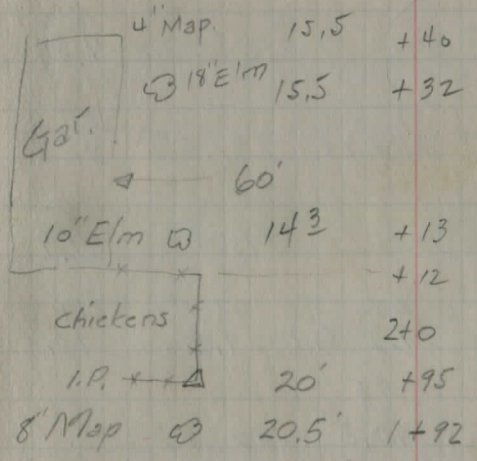 4" Map. 15.5 +40
18" Elm 15.5 +32
Gar.
60'
10" Elm 14 3 +13
+12
chickens
2+0
I.P. 20' +95
8" Map 20.5' 1+92